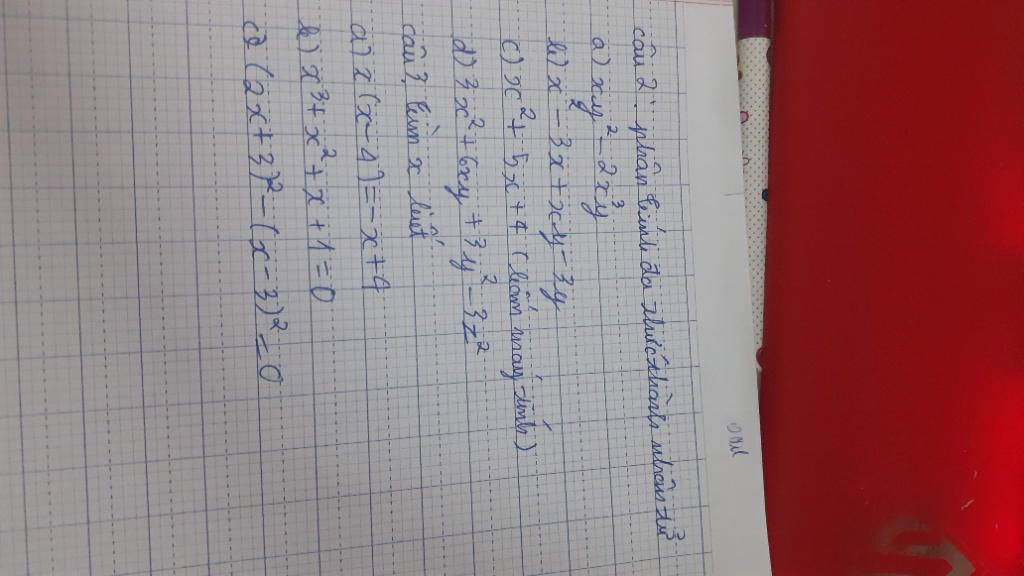 câu 2: phân tích đa thức thành nhân tử
a) xy² - 2xy³
b) x² - 3x + xy - 3y
c) x² + 5x + 4 (bấm máy tính)
d) 3x² + 6xy + 3y² - 3z²
câu 3, tìm x biết
a) x(x-4) = -x+4
b) x³ + x² + x + 1 = 0
c) (2x+3)² - (x-3)² = 0